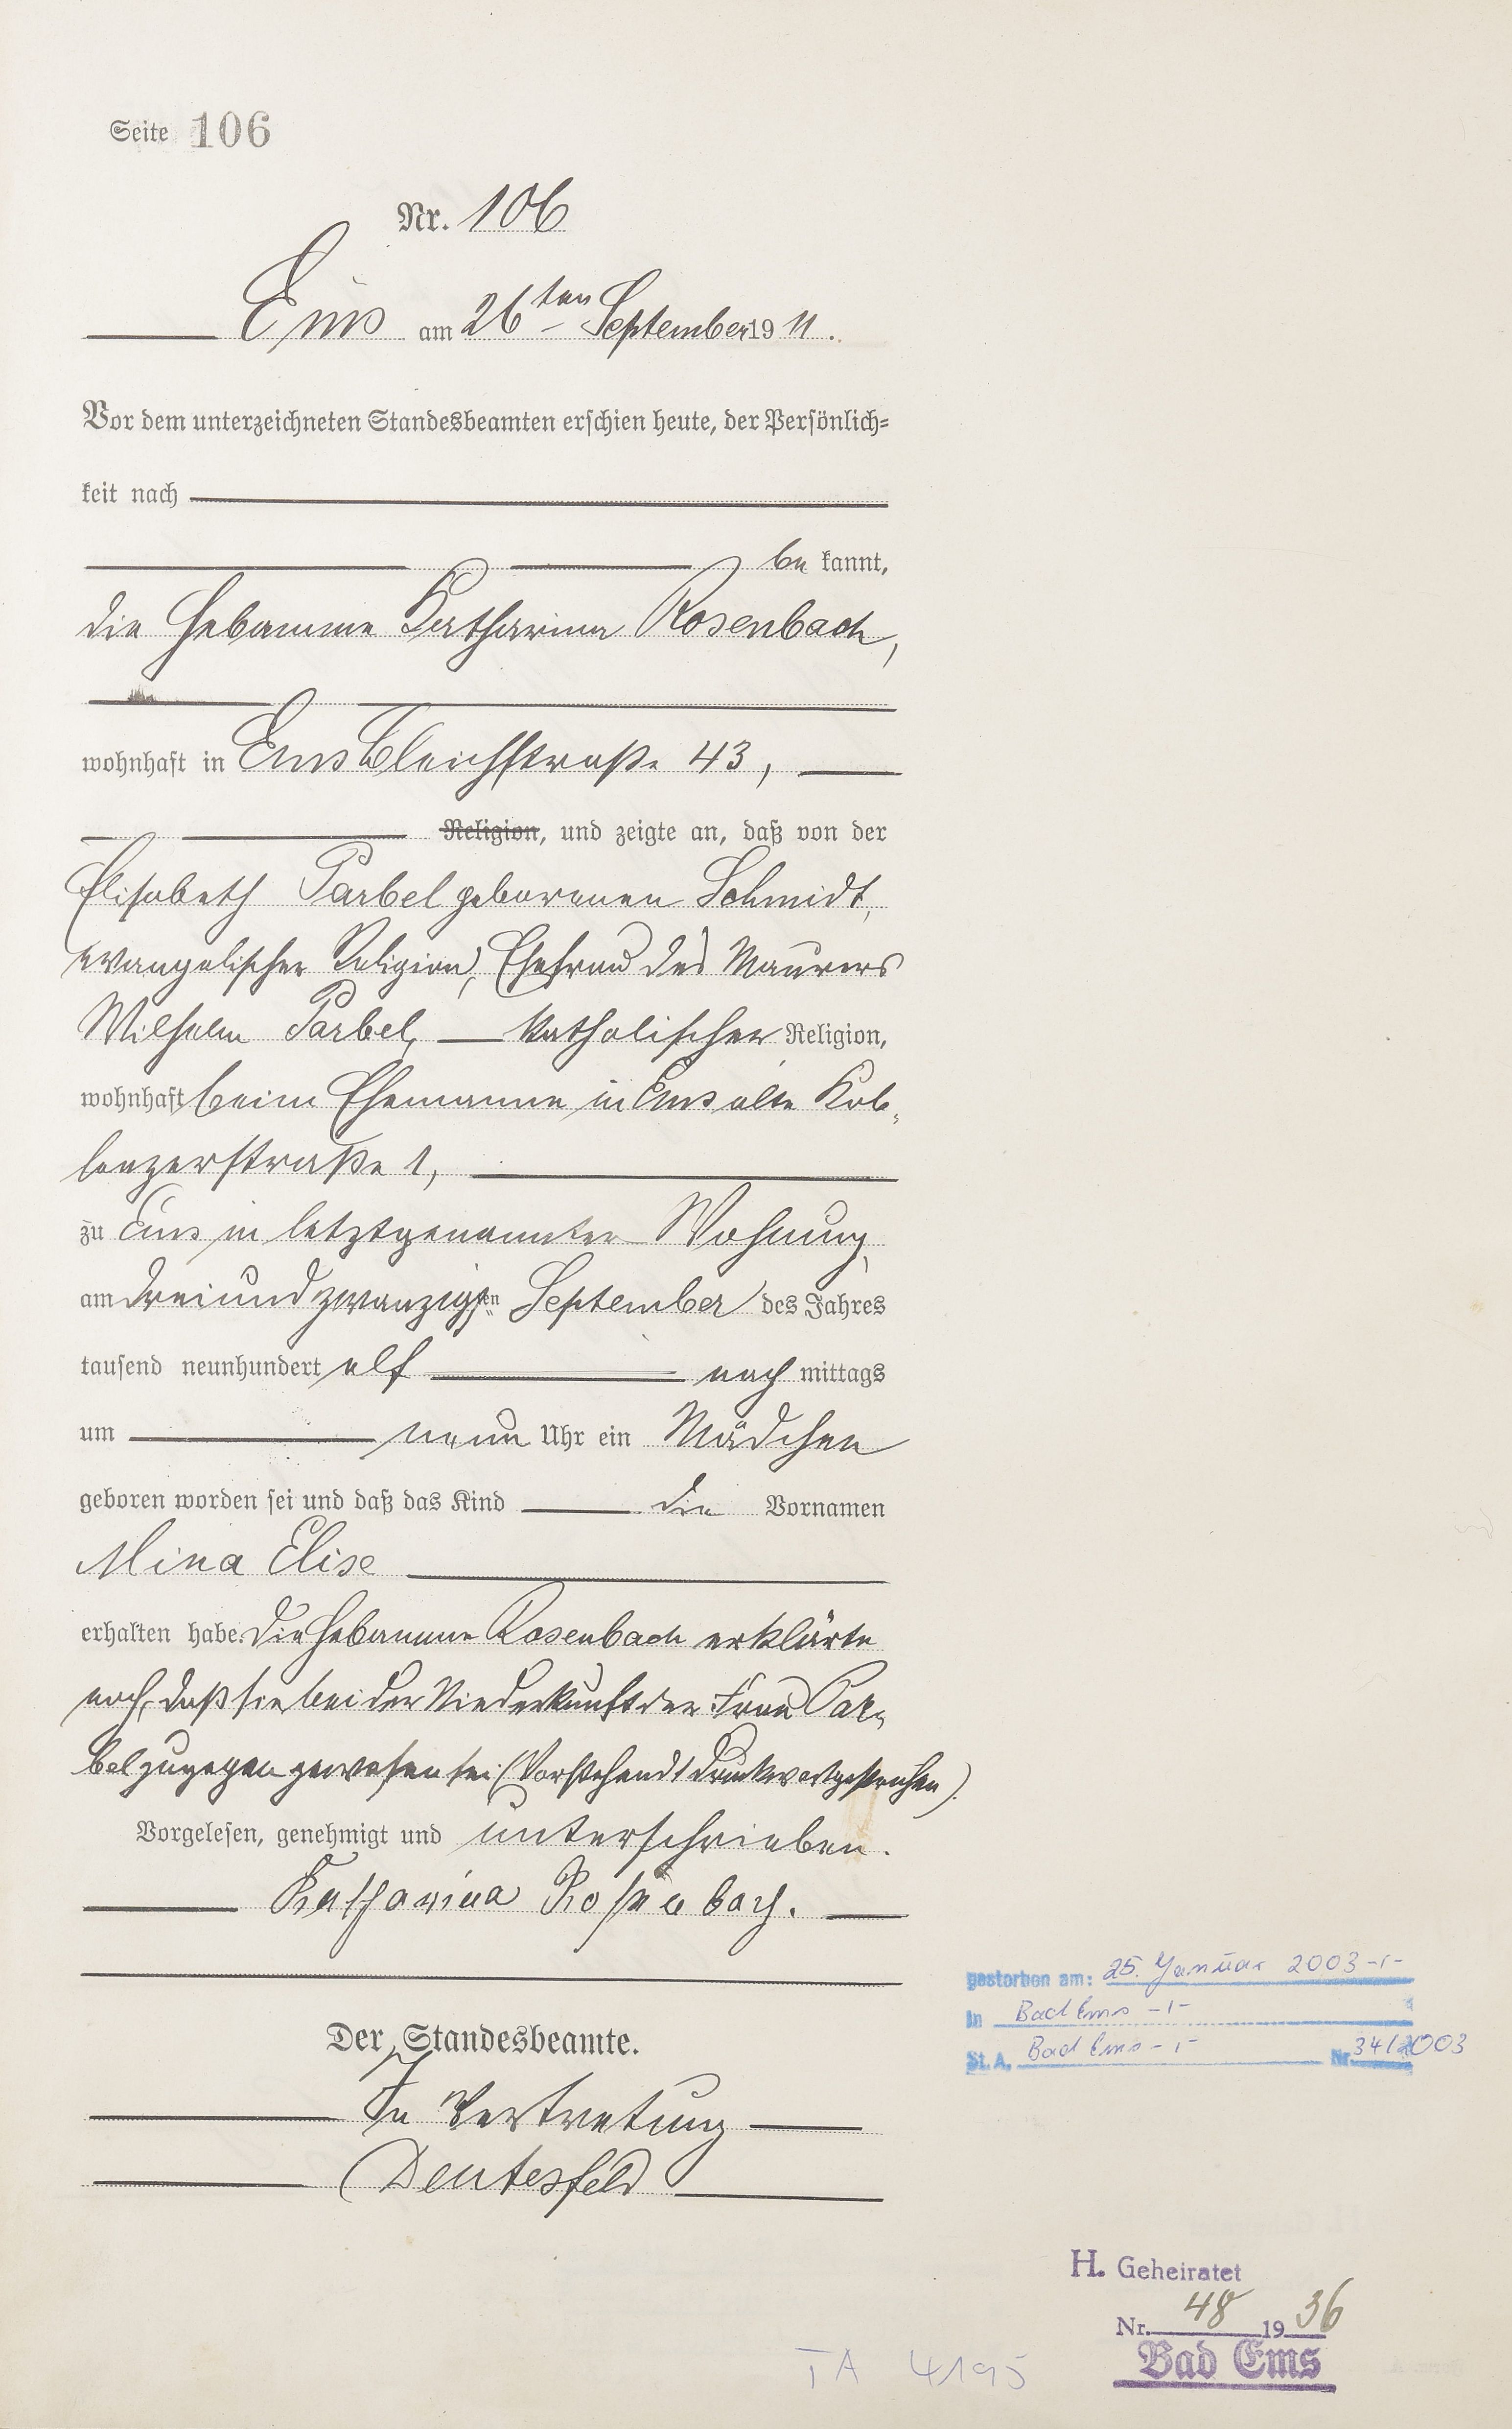 Seite 106
Nr. 106
Ems am 26ten September 1911.
Vor dem unterzeichneten Standesbeamten erschien heute, der Persönlich-
keit nach
bekannt,
die Hebamme Katharina Rosenbach,
wohnhaft in Ems Bleichstraße 43,
Religion, und zeigte an, daß von der
Elisabeth Parbel geborenen Schmidt,
evangelischer Religion, Ehefrau des Maurers
Wilhelm Parbel, katholischer Religion,
wohnhaft beim Ehemanne in Ems alte Kob-
lenzerstraße 1,
zu Ems in letztgenannter Wohnung,
am dreiundzwanzigsten September des Jahres
tausend neunhundert elf nachmittags
um neun Uhr ein Mädchen
geboren worden sei und daß das Kind die Vornamen
Mina Elise
erhalten habe. Die Hebamme Rosenbach erklärte
noch, daß sie bei der Niederkunft der Frau Par-
bel zugegen gewesen sei (Vorstehend 1 Druckwort gestrichen).
Vorgelesen, genehmigt und unterschrieben.
Katharina Rosenbach.
Der Standesbeamte.
In Vertretung
Deutesfeld
gestorben am: 25. Januar 2003 -1-
in Bad Ems -1-
St. A. Bad Ems -1- Nr. 34/2003
H. Geheiratet
Nr. 48 1936
Bad Ems
TA 4195